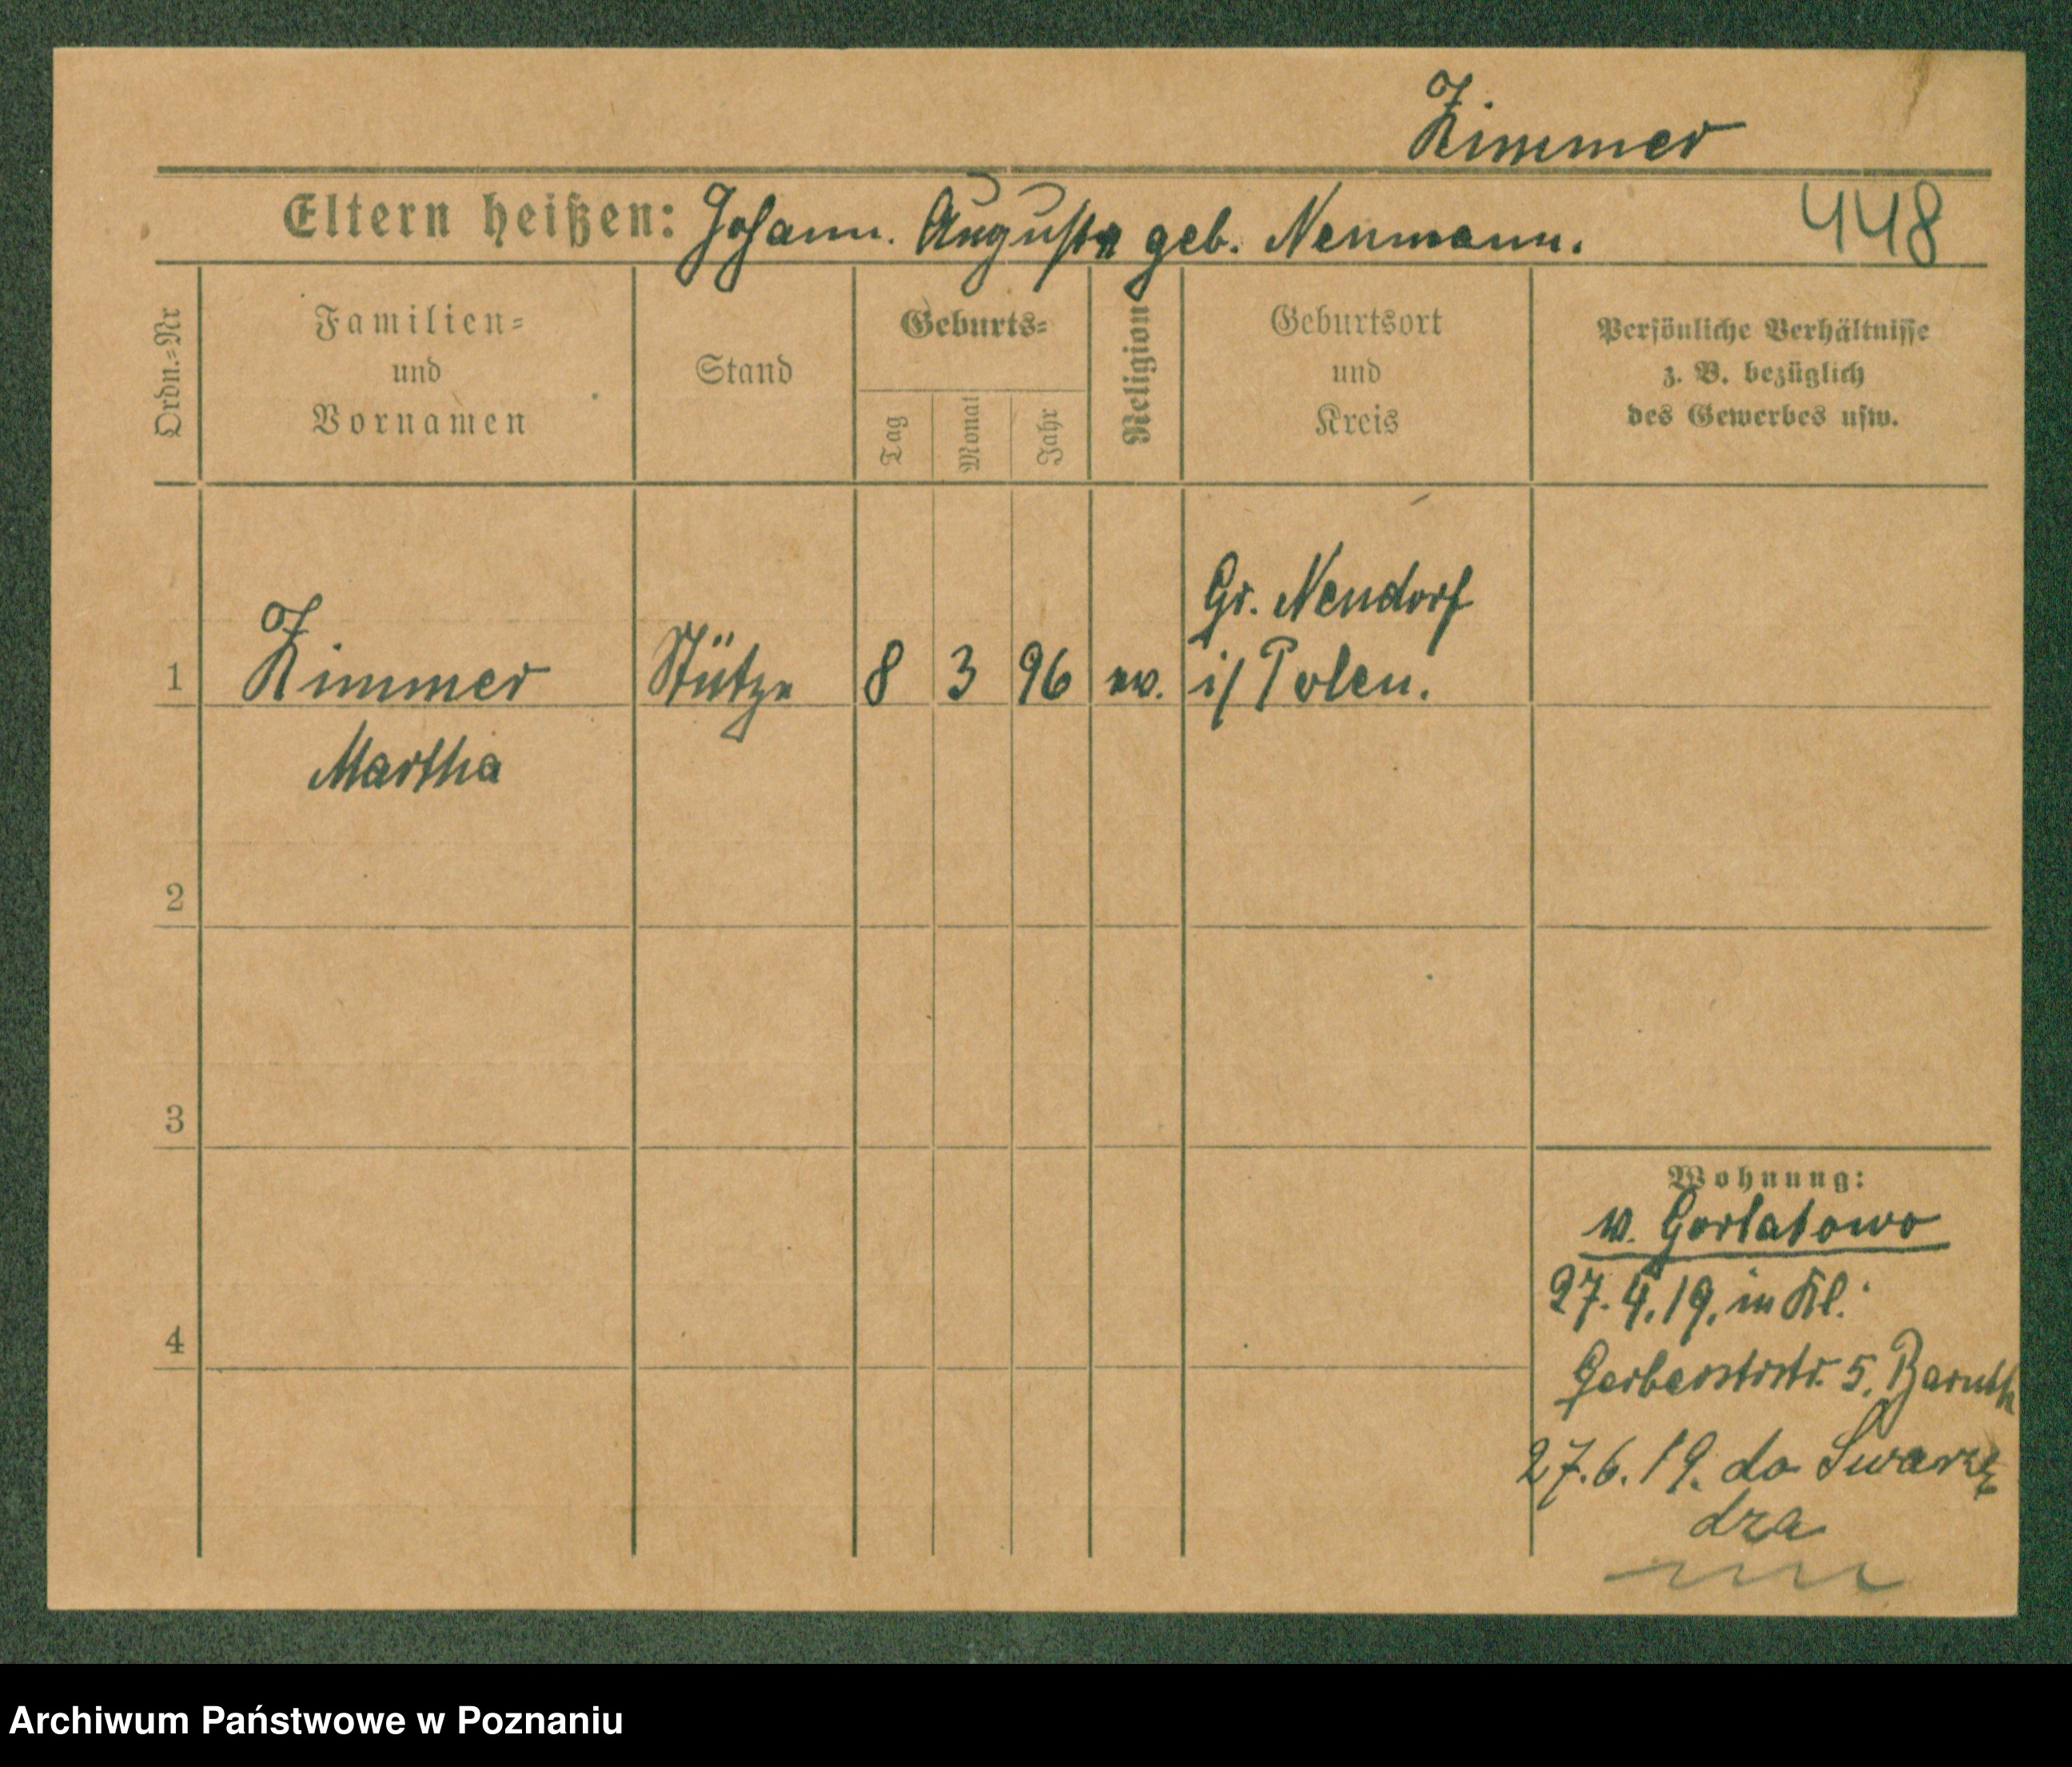 Zimmer
Eltern heißen: Johann. Auguste geb. Neumann.
448
Ordn.=Nr
Familien=
und
Vornamen
Stand
Geburts=
Tag
Monat
Jahr
Religion
Geburtsort
und
Kreis
Persönliche Verhältnisse
z. B. bezüglich
des Gewerbes usw.
1 Zimmer Stütze 8 3 96 ev. Gr. Neudorf
i/ Polen.
Martha
2
3
4
Wohnung:
v. Gorlatowo
27.4.19. in Kl.
Gerberstr. 5. Baruth
27.6.19. do Swarzę
dza
Archiwum Państwowe w Poznaniu